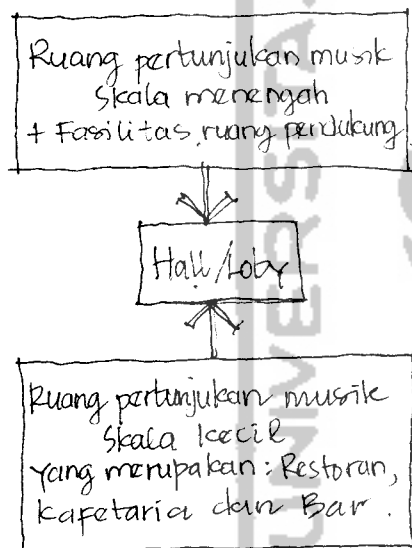 Ruang pertunjukan musik
skala menengah
+ Fasilitas ruang pendukung
Hall/Loby
Ruang pertunjukan musik
Skala kecil
yang merupakan: Restoran,
kafetaria dan Bar.
UNIVERSITA